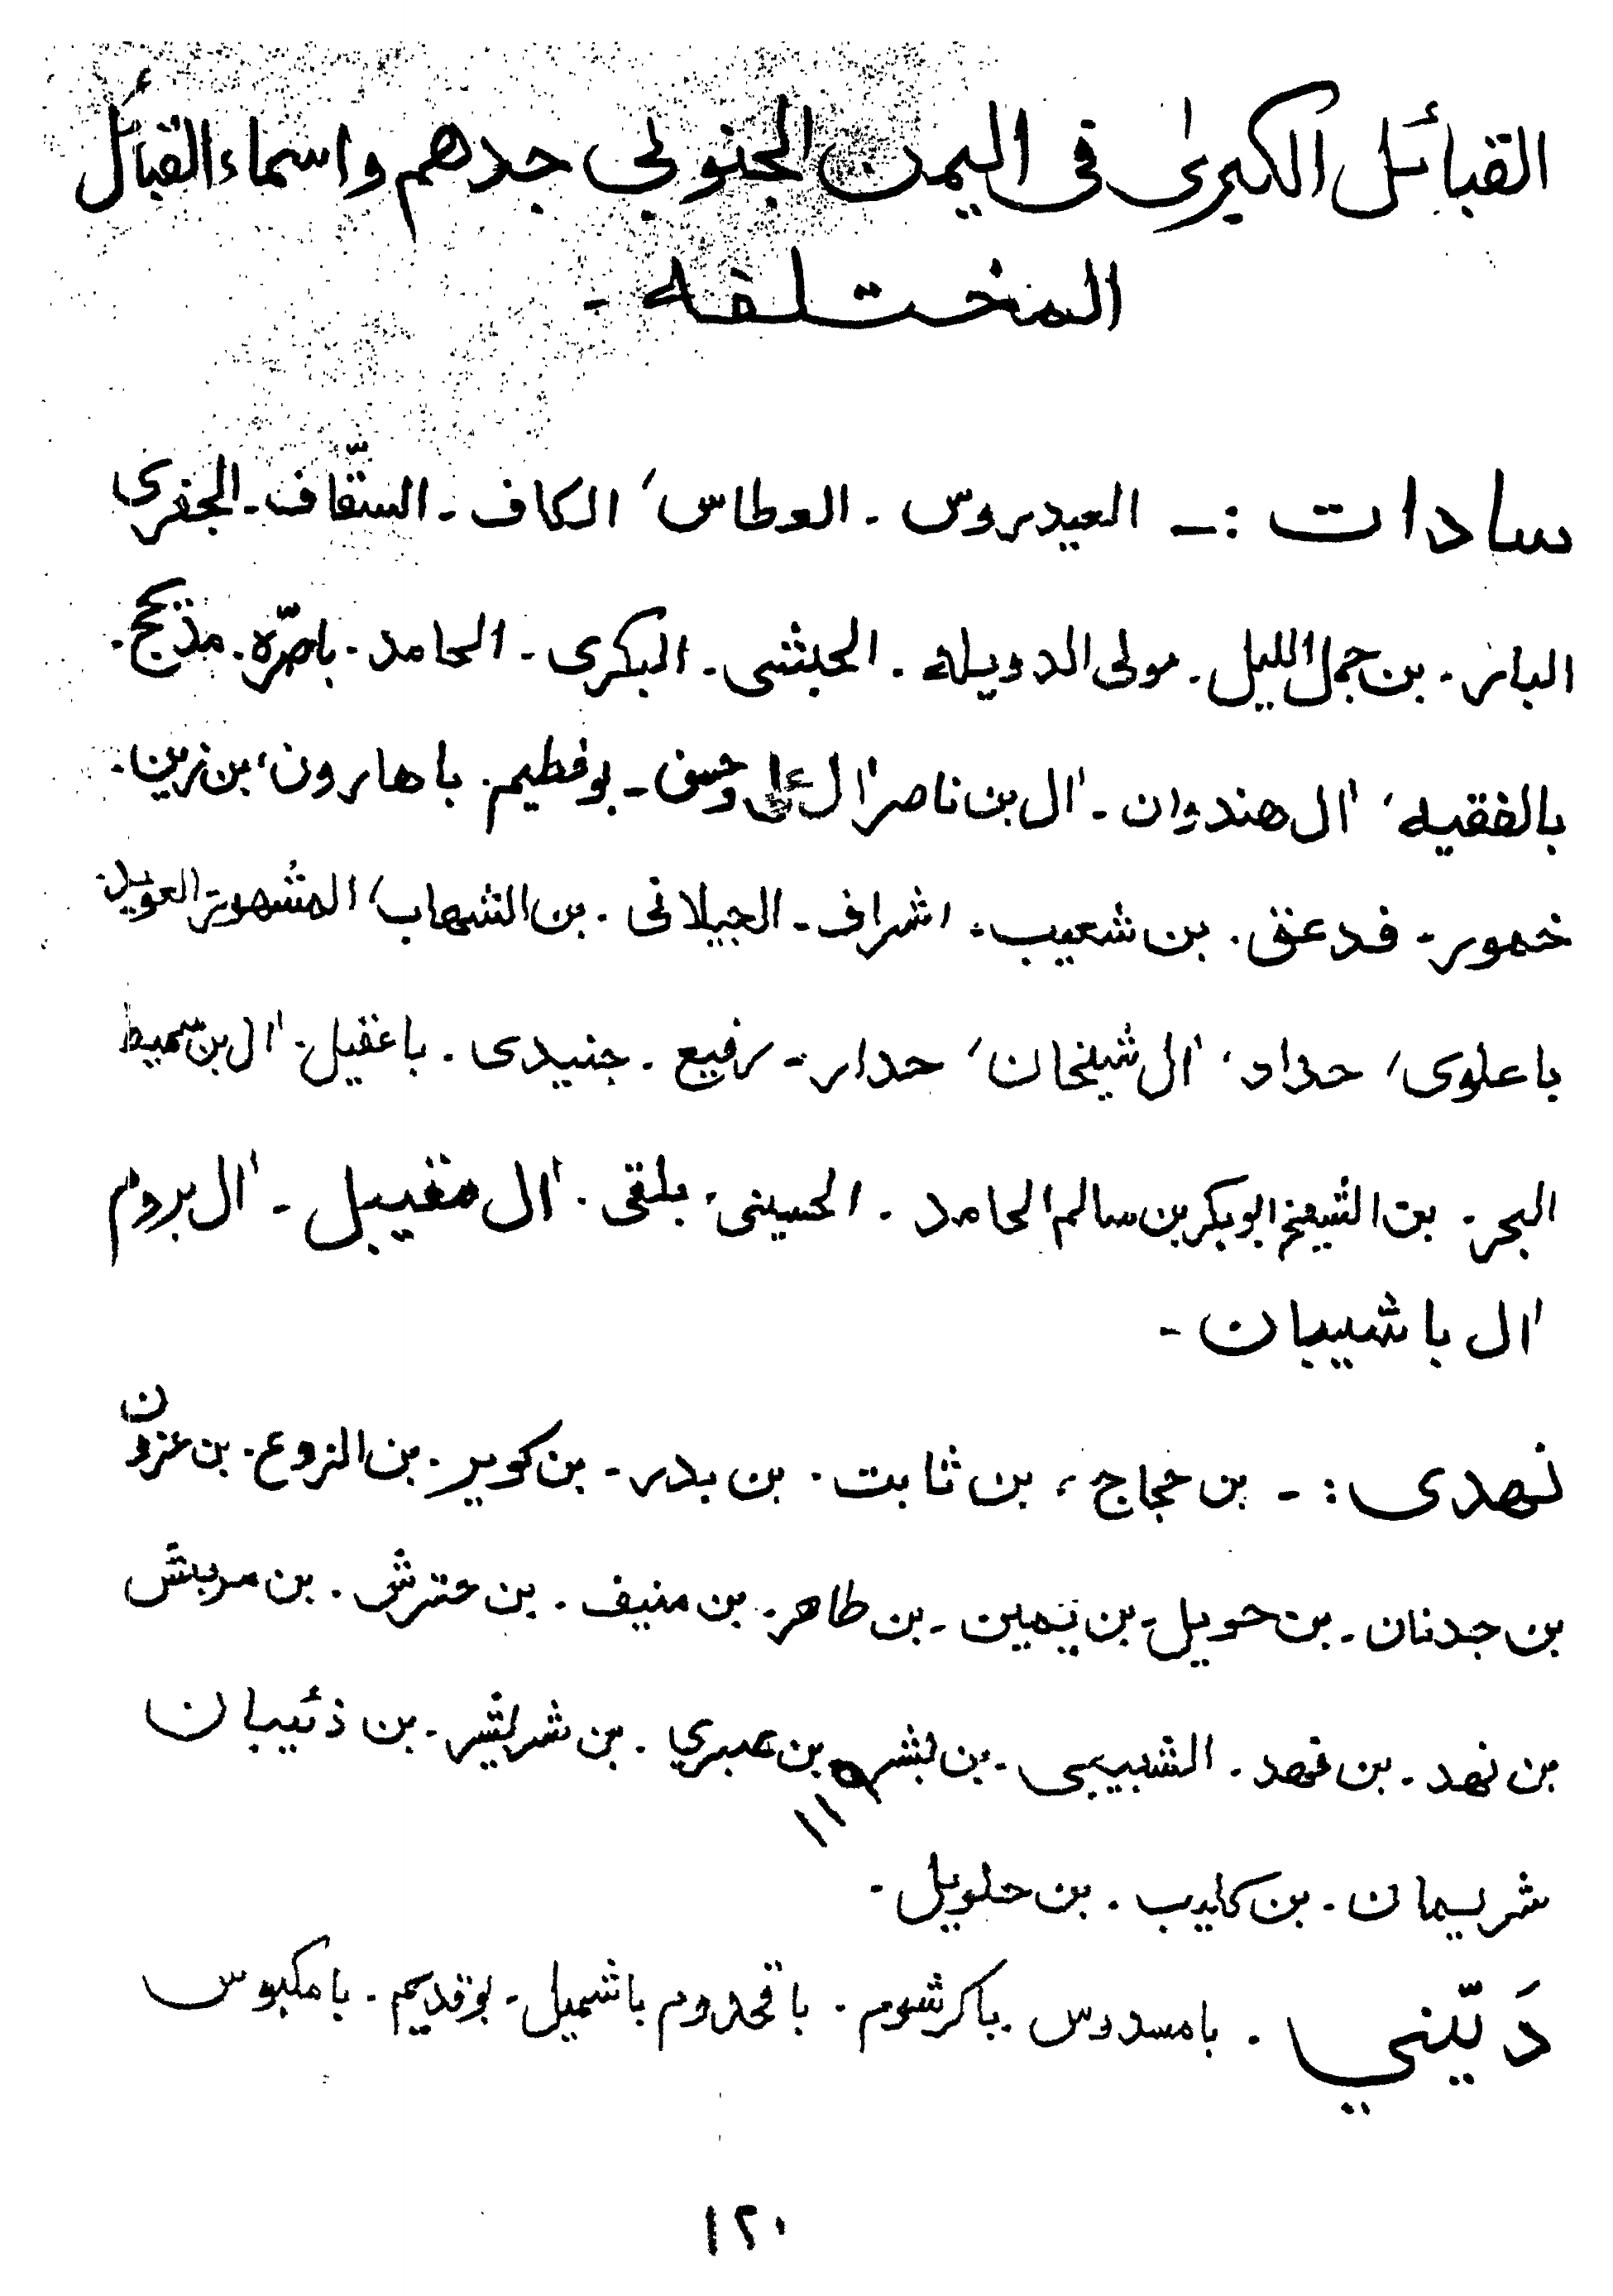 القبائل الكبرىٰ فى اليمن الجنوبي جدهم واسماء القبائل
المختلفه -
سادات :- العيدروس - العطاس، الكاف - السقّاف - الجفرى
الباز - بن جمل الليل - مولى الدويله - الحبشى - البكرى - الحامد - باصرّه - مذيحج -
بالفقيه، اٰل هندوان - اٰل بن ناصر اٰل على وحسن - بوفطيم - با هارون، بن زين -
خمور - فدعق - بن شعيب - اشراف - الجيلانى - بن الشهاب، المشهور العويل
با علوى، حداد، اٰل شيخان، حدار - رفيع - جنيدى - با عقيل - اٰل بن سميط
البحر - بن الشيخ ابوبكر بن سالم الحامد - الحسينى، بلقى - اٰل مقيبل - اٰل بروم
اٰل با شيبان -
نهدى :- بن حجاج، بن ثابت - بن بدر - بن كوير - بن الزوع - بن عزون
بن جدنان - بن حويل - بن يمين - بن طاهر - بن منيف - بن عترش - بن مربش
بن نهد - بن فهد - الشبيبى - بن بشر - بن عبري - بن شريشر - بن ذئيبان
١١٩
شريمان - بن كليب - بن حلويل -
دَيّني - بامسدوس - باكرشوم - با قحدوم باشميل - بوقديم - بامكبوس
١٢٠